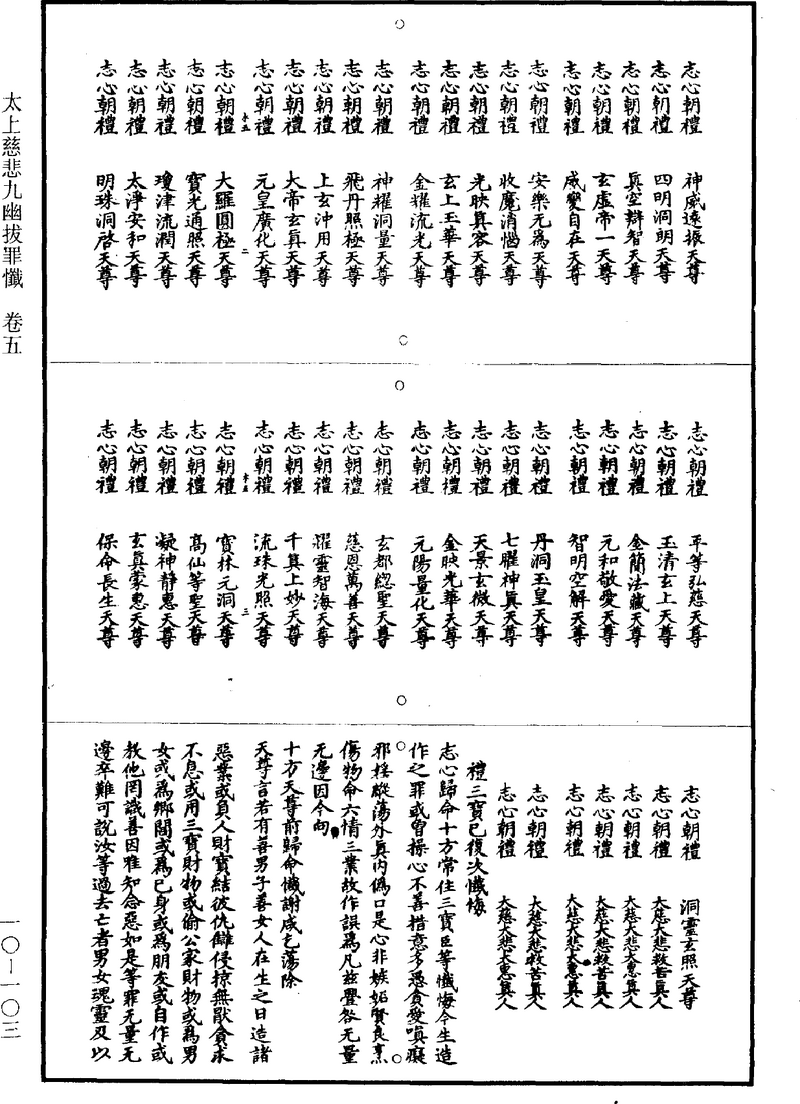 太上慈悲九幽拔罪懺　卷五
志心朝禮　神威遠振天尊
志心朝禮　四明洞朗天尊
志心朝禮　真空辯智天尊
志心朝禮　玄虛帝一天尊
志心朝禮　威變自在天尊
志心朝禮　安樂元為天尊
志心朝禮　收魔消惱天尊
志心朝禮　光映真容天尊
志心朝禮　玄上玉華天尊
志心朝禮　金耀流光天尊
志心朝禮　神耀洞量天尊
志心朝禮　飛丹照極天尊
志心朝禮　上玄沖用天尊
志心朝禮　大帝玄真天尊
志心朝禮　元皇廣化天尊
二
志心朝禮　大羅圓極天尊
志心朝禮　寶光通照天尊
志心朝禮　瓊津流潤天尊
志心朝禮　太淨安和天尊
志心朝禮　明珠洞啓天尊
志心朝禮　平等弘慈天尊
志心朝禮　玉清玄上天尊
志心朝禮　金簡法藏天尊
志心朝禮　元和敬愛天尊
志心朝禮　智明空解天尊
志心朝禮　丹洞玉皇天尊
志心朝禮　七曜神真天尊
志心朝禮　天景玄微天尊
志心朝禮　金映光華天尊
志心朝禮　元陽量化天尊
志心朝禮　玄都總聖天尊
志心朝禮　慈恩萬善天尊
志心朝禮　耀靈智海天尊
志心朝禮　千真上妙天尊
志心朝禮　流珠光照天尊
三
志心朝禮　寶林元洞天尊
志心朝禮　高仙等聖天尊
志心朝禮　凝神靜惠天尊
志心朝禮　玄真蒙惠天尊
志心朝禮　保命長生天尊
志心朝禮　洞靈玄照天尊
志心朝禮　大慈大悲救苦真人
志心朝禮　大慈大悲大惠真人
志心朝禮　大慈大悲救苦真人
志心朝禮　大慈大悲大惠真人
志心朝禮　大慈大悲救苦真人
志心朝禮　大慈大悲大惠真人
禮三寶已復次懺悔
志心歸命十方常住三寶臣等懺悔今生造
作之罪或曾操心不善措意多愚貪愛嗔癡
邪婬縱蕩外真內僞口是心非嫉妬賢良烹
傷物命六情三業故作誤為凡茲釁咎无量
无邊因今向
十方天尊前歸命懺謝咸乞蕩除
天尊言若有善男子善女人在生之日造諸
惡業或負人財寶結彼仇讎侵掠無猒貪求
不息或用三寶財物或偷公家財物或為男
女或為鄉閭或為己身或為朋友或自作或
教他罔識善因唯知念惡如是等罪无量无
邊卒難可說汝等過去亡者男女魂靈及以
一〇—一〇三